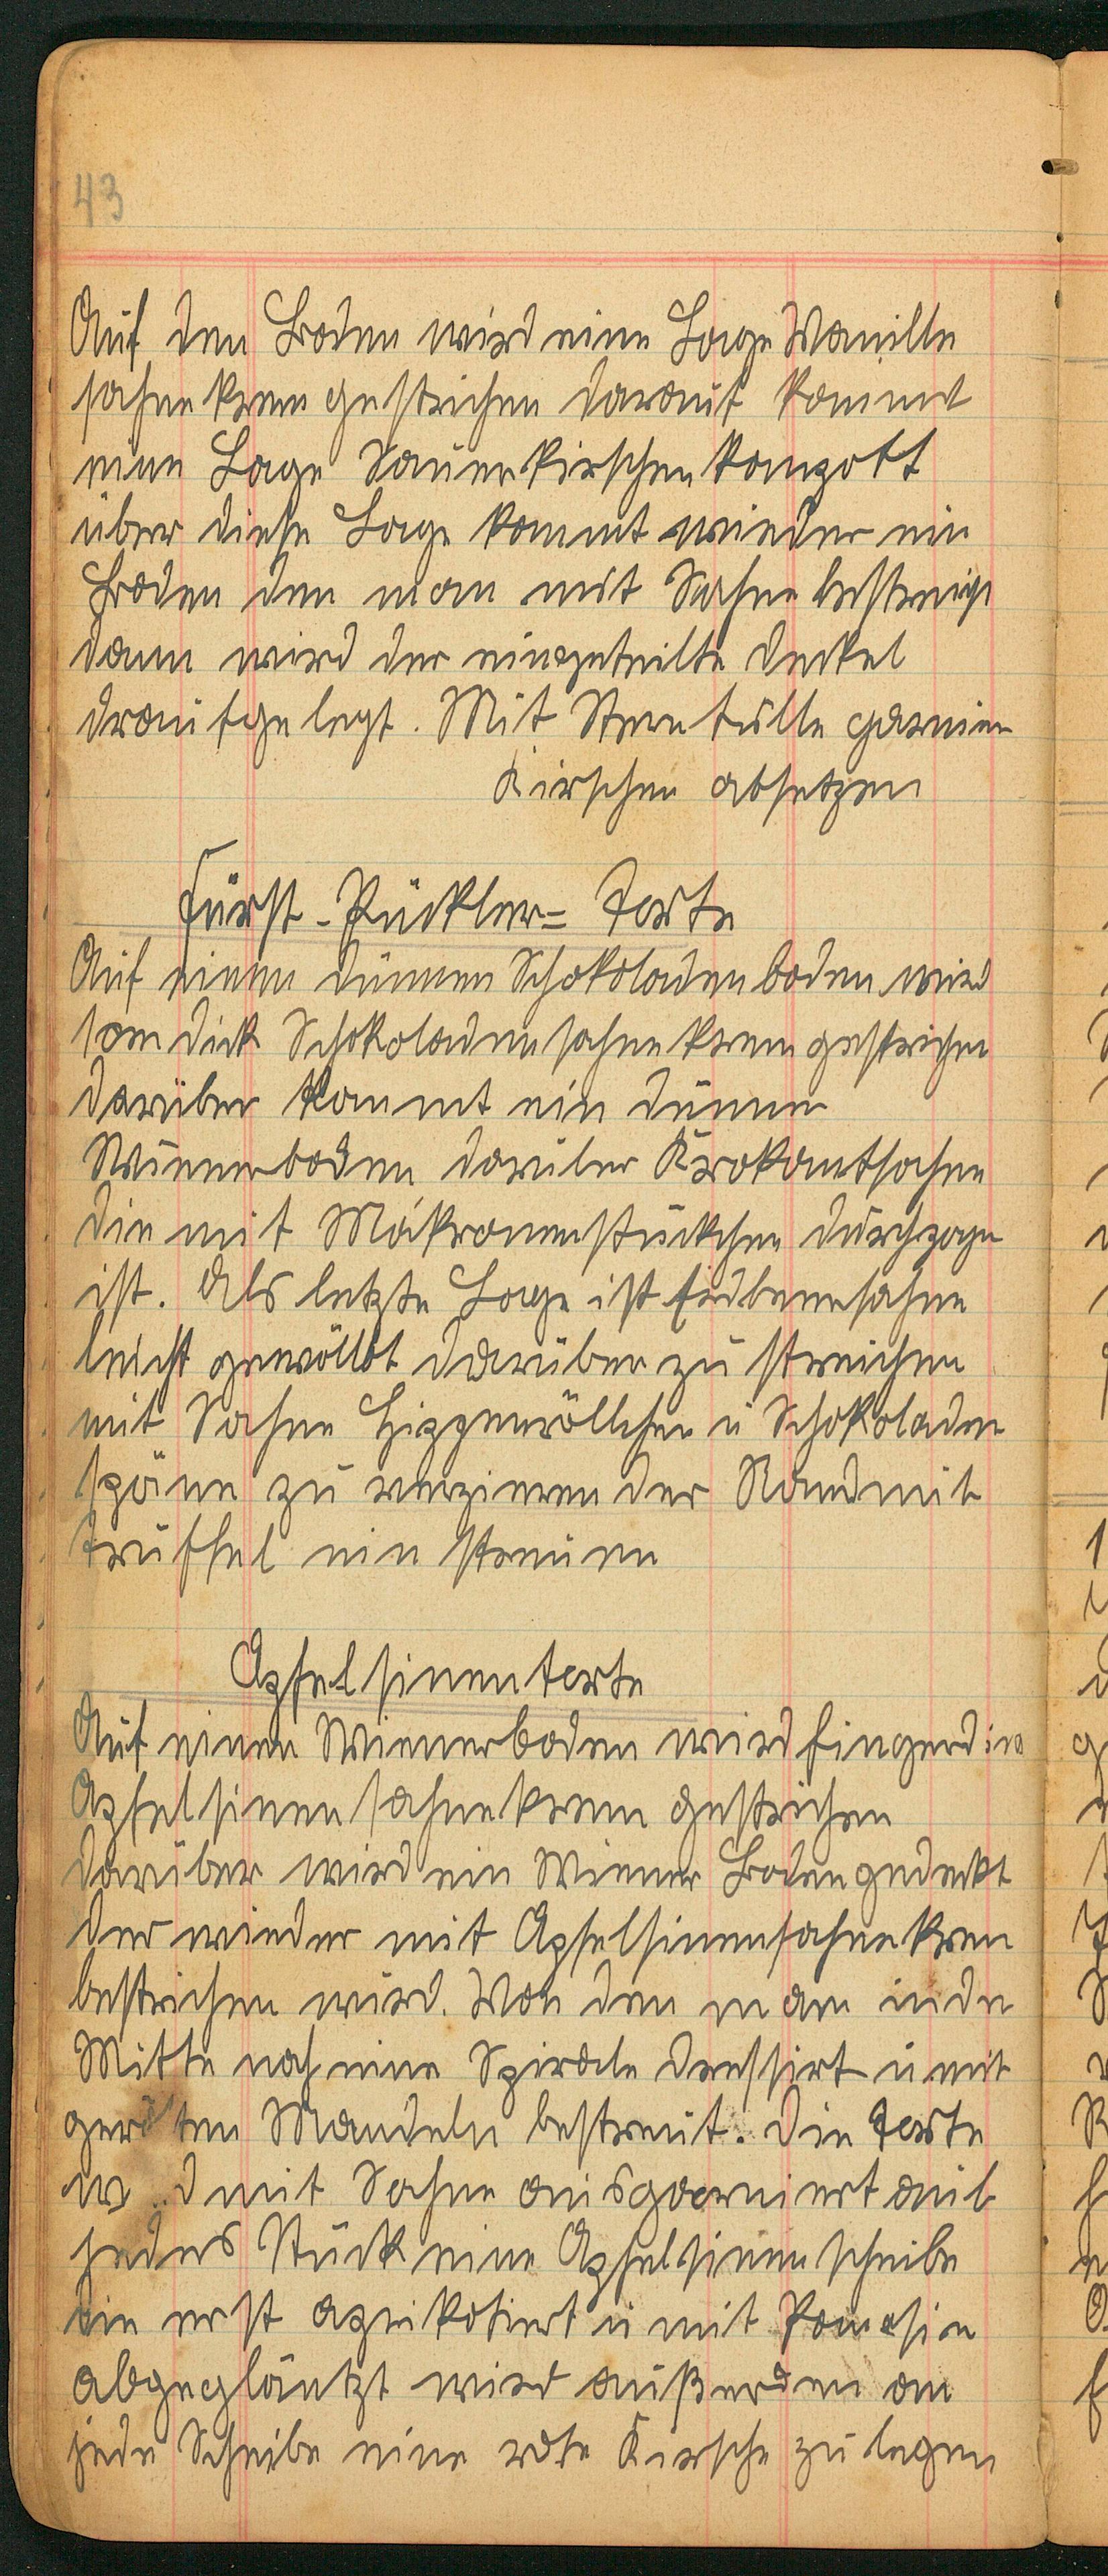 43
Auf den Boden wird eine Lage Vanille
sahnekrem gestrichen darauf kommt
eine Lage Sauerkirschenkompott
über diese Lage kommt wieder ein
Boden den man mit Sahne bestreigt
dann wird der eingeteilte Deckel
draufgelegt. Mit Sterntülle garnier
Kirschen absetzen
Fürst-Pückler= Torte
Auf einem dünnen Schokoladenboden wird
1 cm dick Schokoladensahnekrem gestrichen
darüber kommt ein dünner
Wienerboden darüber Krokantsahne
die mit Makronenstückchen durchzogen
ist. Als letzte Lage ist Erdbeersahne
leicht gewöllbt darüber zu streichen
mit Sahne Hippenröllchen u Schokoladen
späne zu verzieren der Rand mit
Trüffel ein streuen
Apfelsinentorte
Auf einen Wienerboden wird fingerdick
Apfelsinensahnekrem gestrichen
darüber wird ein Wiener Boden gedeckt
der wieder mit Apfelsinensahnekrem
bestrichen wird. Von den man in de
Mitte noch eine Spirale dressirt u mit
Mandeln bestreut. Die Torte
mit Sahne ausgarniert auf
jedes Stück eine Apfelsinenscheibe
die erst aprikotiert u mit
abgeglänkzt wird außerdem an
jede Scheibe eine rote Kirsche zu legen